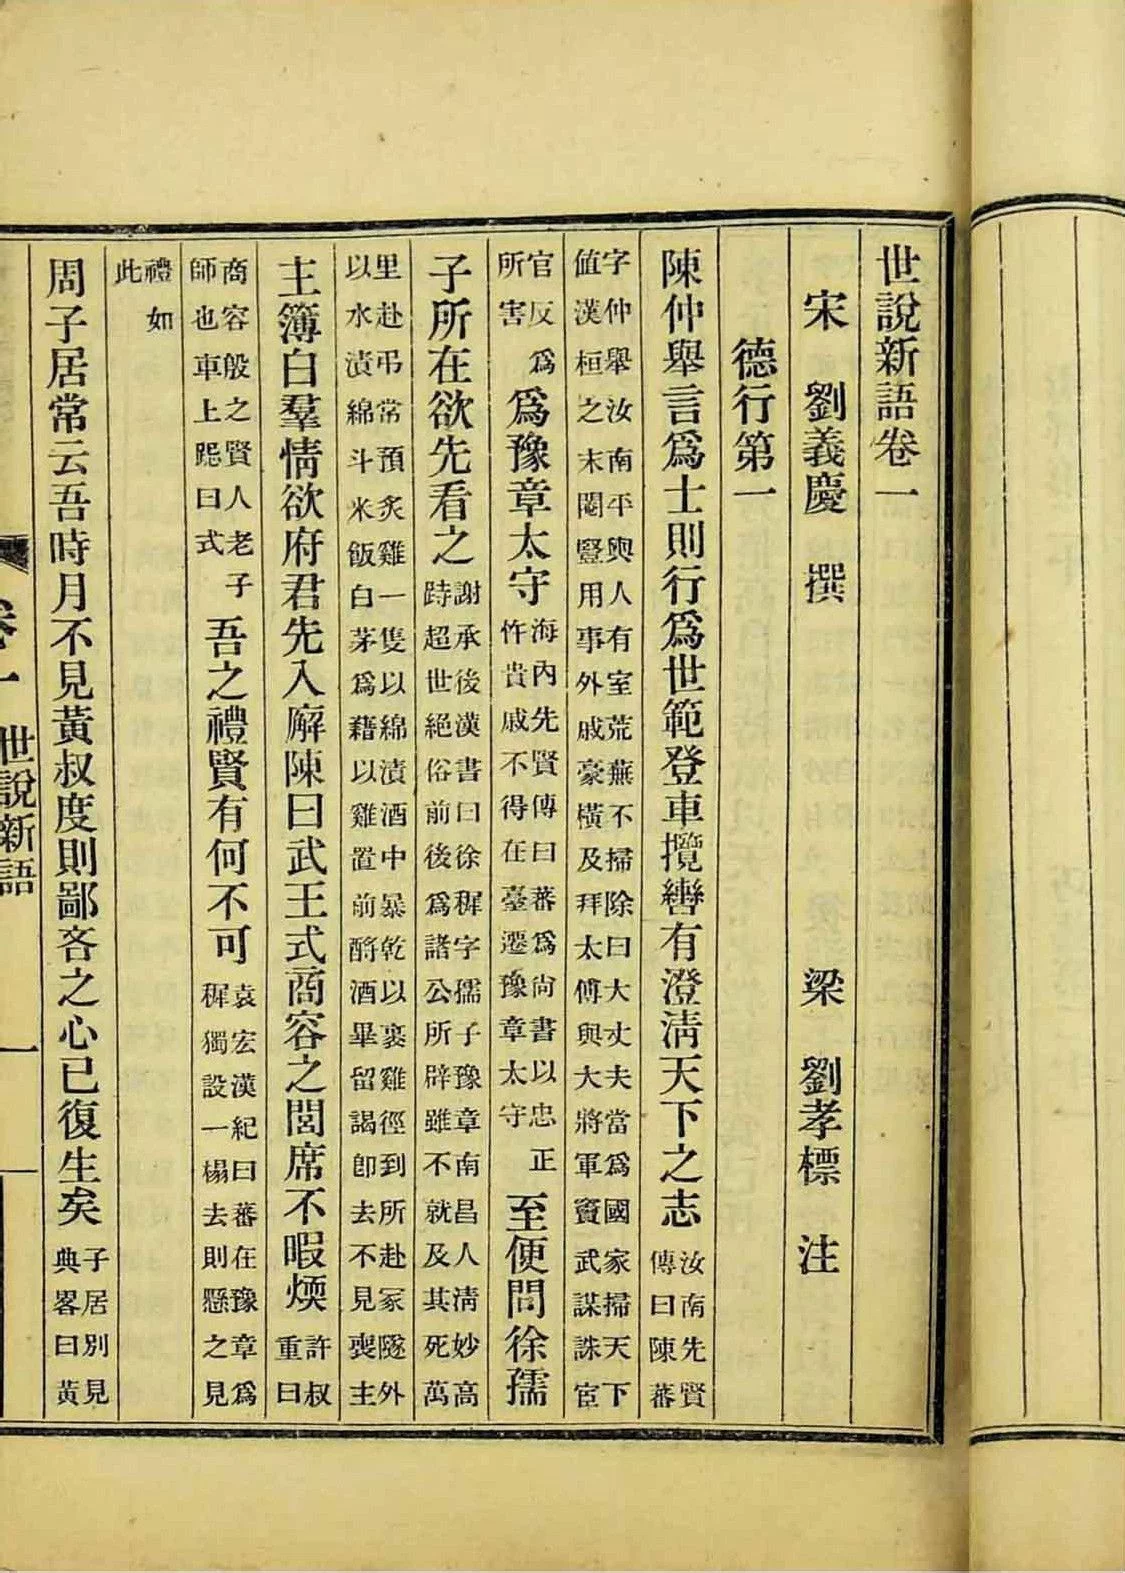 世說新語卷一
宋 劉義慶 撰 梁 劉孝標 注
德行第一
陳仲舉言爲士則行爲世範登車攬轡有澄淸天下之志汝南先賢傳曰陳蕃
字仲舉汝南平輿人有室荒蕪不掃除曰大丈夫當爲國家掃天下
値漢桓之末閹豎用事外戚豪橫及拜太傅與大將軍竇武謀誅宦
官反爲所害爲豫章太守海內先賢傳曰蕃爲尚書以忠正忤貴戚不得在臺遷豫章太守至便問徐孺
子所在欲先看之謝承後漢書曰徐穉字孺子豫章南昌人淸妙高跱超世絕俗前後爲諸公所辟雖不就及其死萬
里赴弔常預炙雞一隻以綿漬酒中暴乾以裹雞徑到所赴冢隧外
以水漬綿斗米飯白茅爲藉以雞置前酹酒畢留謁卽去不見喪主
主簿白羣情欲府君先入廨陳曰武王式商容之閭席不暇煗許叔重曰
商容殷之賢人老子師也車上跽曰式吾之禮賢有何不可袁宏漢紀曰蕃在豫章爲穉獨設一榻去則懸之見
禮如此
周子居常云吾時月不見黃叔度則鄙吝之心已復生矣子居別見典畧曰黃
卷一 世說新語 一